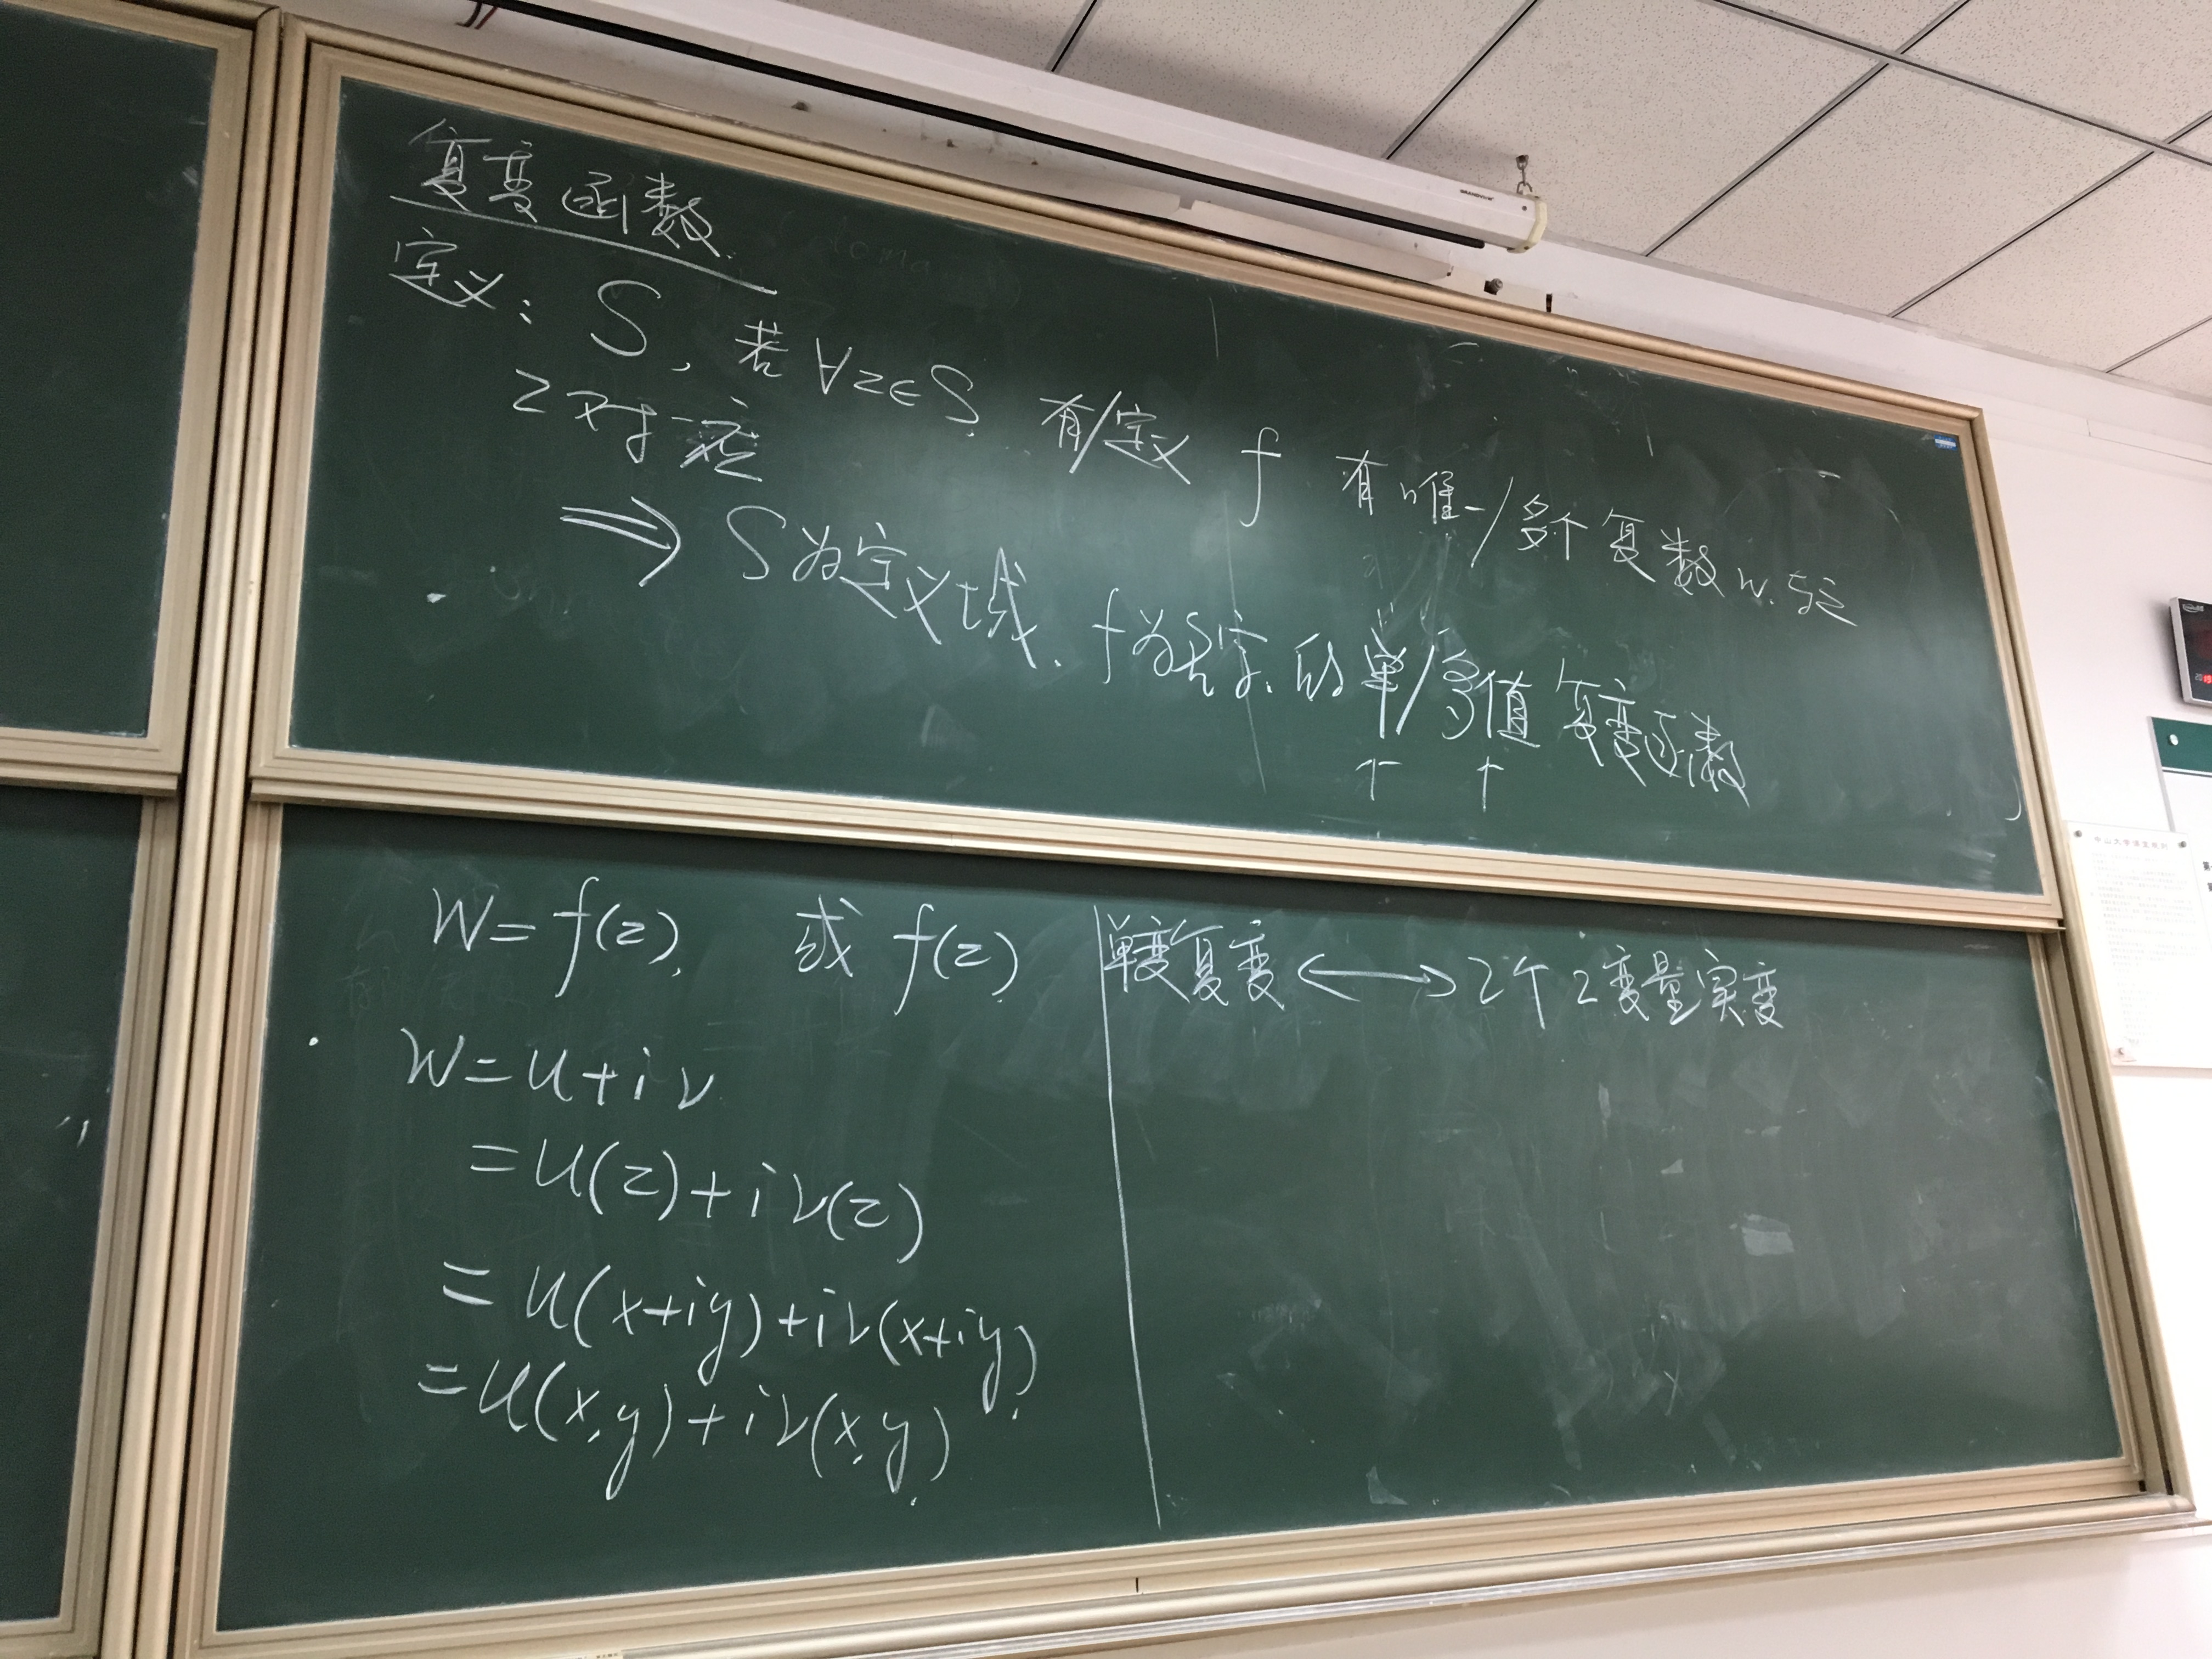 复变函数
定义: S, 若 ∀z∈S 有/定义 f 有唯一/多个复数 w, 与之
z 对应
⟹ S为定义域. f为 的单/多值复变函数
↑ ↑
W=f(z), 或 f(z)
W=u+iv
=u(z)+iv(z)
=u(x+iy)+iv(x+iy)
=u(x,y)+iv(x,y)
单变复变 ⟷ 2个2变量实变
中山大学课堂规则